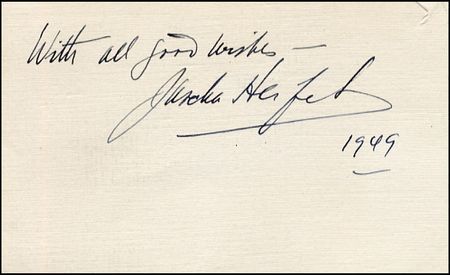 With all good wishes —
Jascha Heifetz
1949